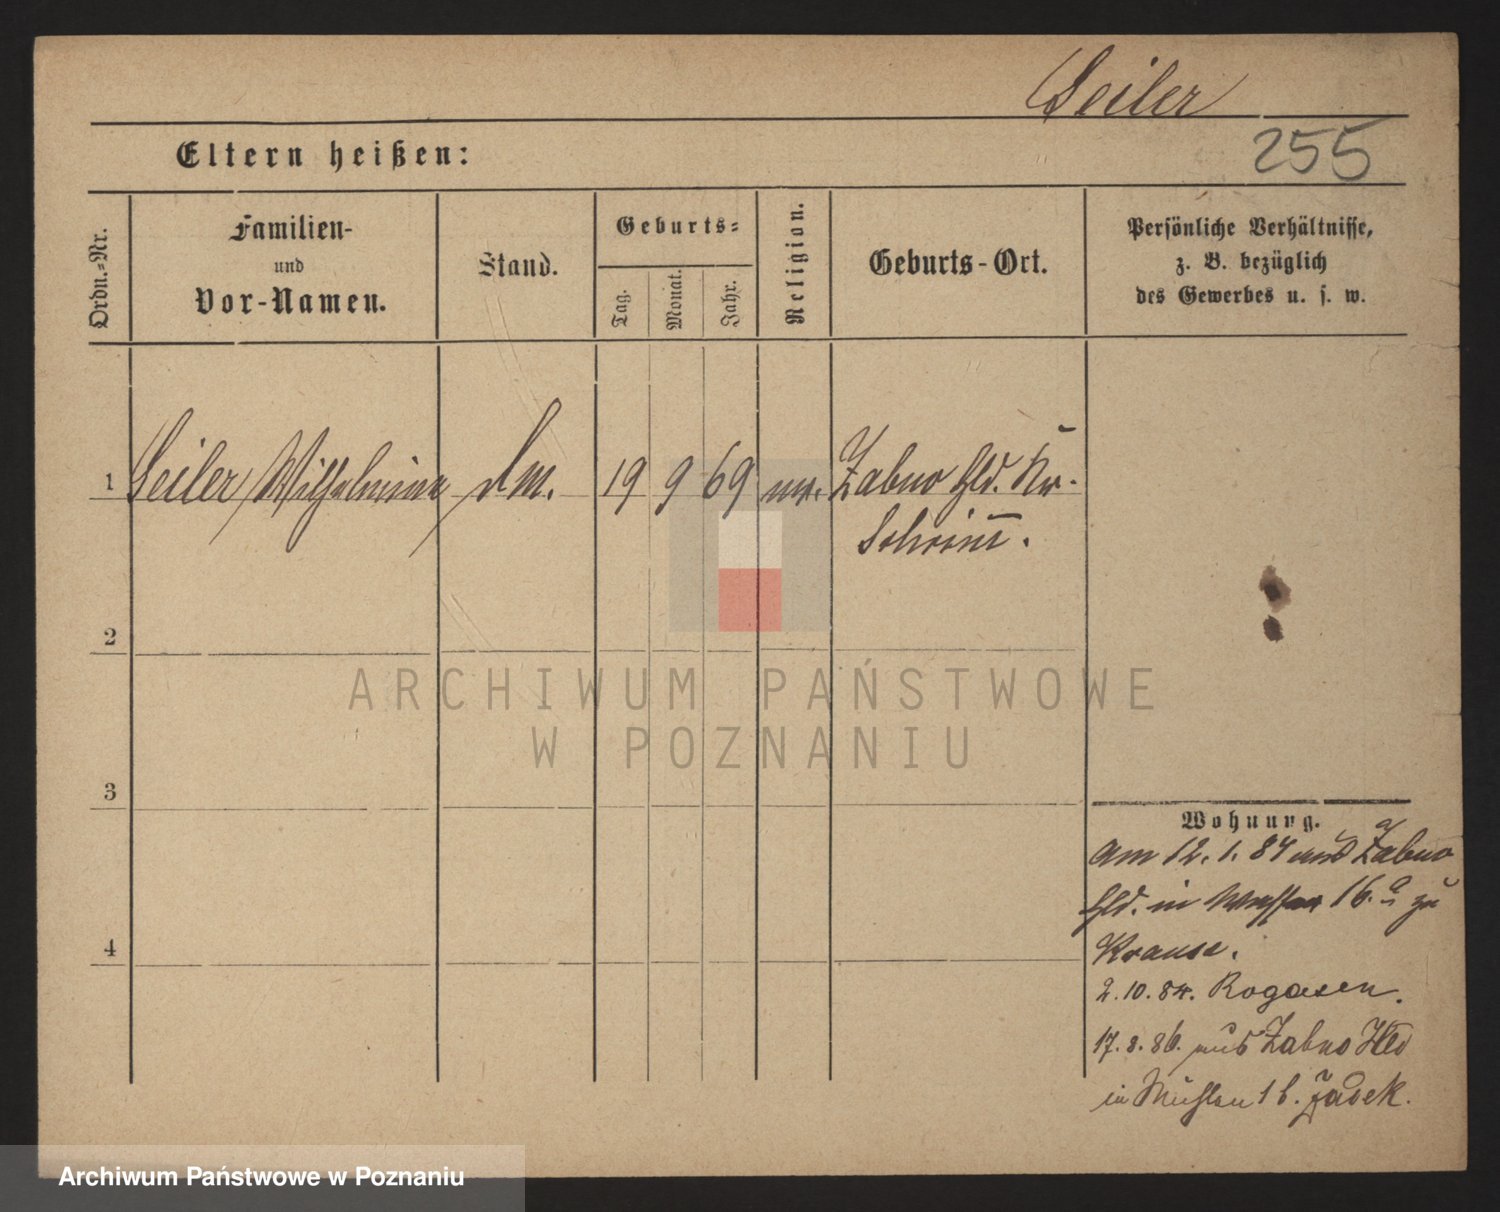 Seiler
255
Eltern heißen:
Ordn.-Nr.
Familien-
und
Vor-Namen.
Stand.
Geburts-
Tag.
Monat.
Jahr.
Religion.
Geburts-Ort.
Persönliche Verhältnisse,
z. B. bezüglich
des Gewerbes u. s. w.
1 Seiler Wilhelmine 19 9 69 Zabno Hld. Kr.
Schrim̅.
2
3
4
ARCHIWUM PAŃSTWOWE
W POZNANIU
Wohnung.
am 12. 1. 84 aus Zabno
Hld. in 16.a zu
Krause.
2. 10. 84. Rogasen.
17. 8. 86. aus Zabno Hld
in Mühlen 1 b. Jasek.
Archiwum Państwowe w Poznaniu